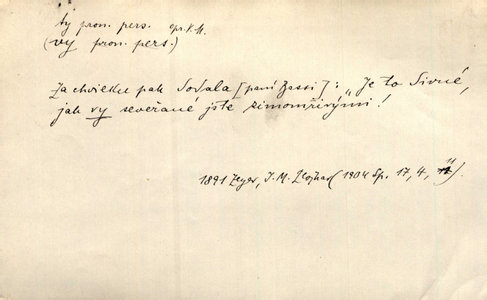 ty pron. pers.
(vy pron. pers.)
Za chvilku pak dodala [paní Bassi]: „Je to divné,
jak vy seveřané jste zimomřivými!
1891 Zeyer, J. M. Plojhar (1904 Sp. 17, 4, 11).